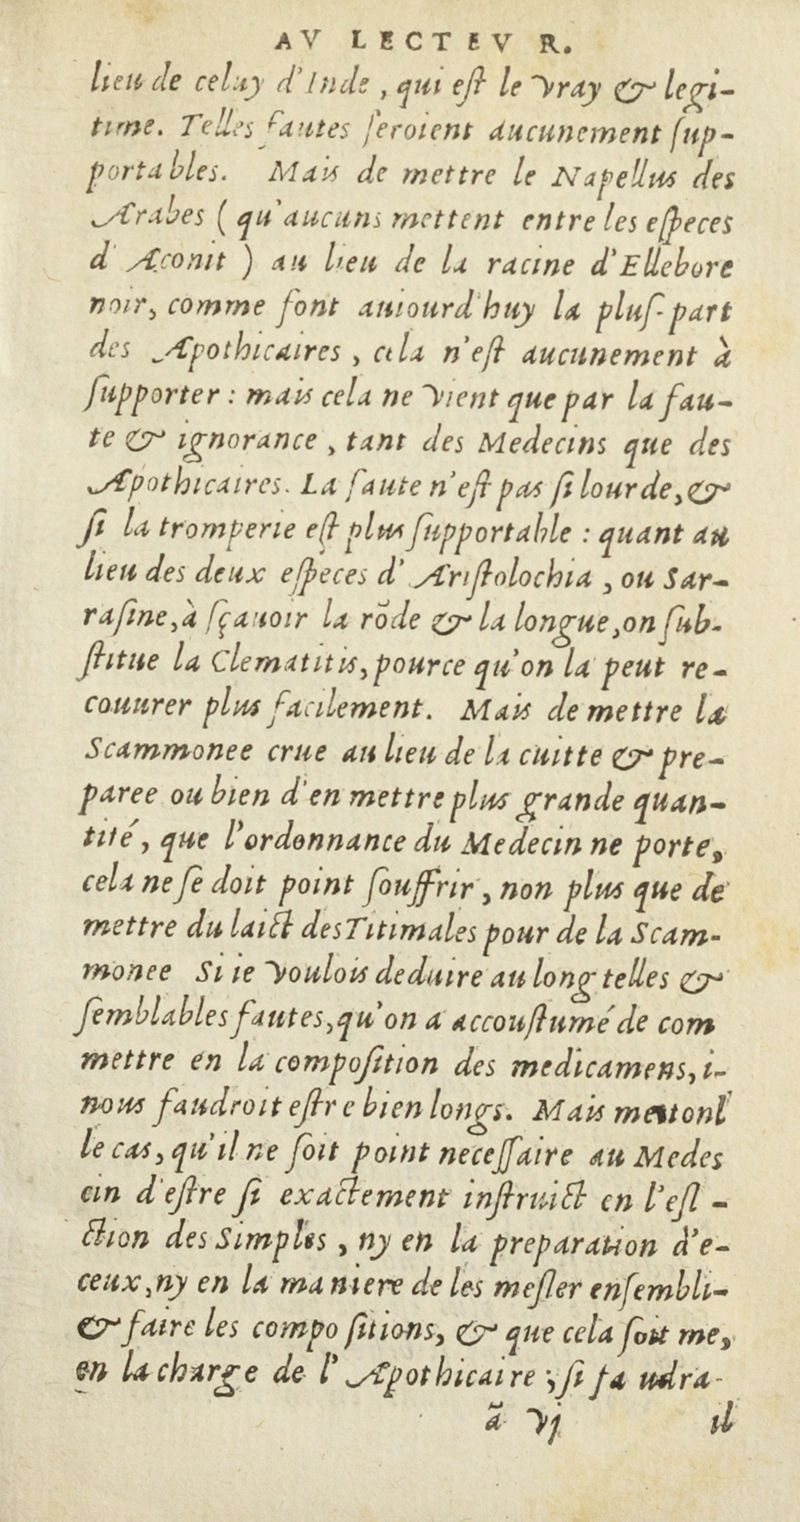 AV LECTEVR.
lieu de celuy d'Inde, qui eſt le vray & legi-
time. Telles fautes ſeroient aucunement ſup-
portables. Mais de mettre le Napellus des
Arabes (qu'aucuns mettent entre les eſpeces
d'Aconit) au lieu de la racine d'Ellebore
noir, comme font auiourd'huy la pluſ-part
des Apothicaires, cela n'eſt aucunement à
ſupporter: mais cela ne vient que par la fau-
te & ignorance, tant des Medecins que des
Apothicaires. La faute n'eſt pas ſi lourde, &
ſi la tromperie eſt plus ſupportable: quant au
lieu des deux eſpeces d'Ariſtolochia, ou Sar-
raſine, à ſçauoir la rõde & la longue, on ſub-
ſtitue la Clematitis, pource qu'on la peut re-
couurer plus facilement. Mais de mettre la
Scammonee crue au lieu de la cuitte & pre-
paree ou bien d'en mettre plus grande quan-
tité, que l'ordonnance du Medecin ne porte,
cela ne ſe doit point ſouffrir, non plus que de
mettre du laict des Titimales pour de la Scam-
monee Si ie voulois deduire au long telles &
ſemblables fautes, qu'on a accouſtumé de com
mettre en la compoſition des medicamens, i-
nous faudroit eſtre bien longs. Mais mettonl
le cas, qu'il ne ſoit point neceſſaire au Medes
cin d'eſtre ſi exactement inſtruict en l'eſl-
ction des Simples, ny en la preparation d'e-
ceux, ny en la maniere de les meſler enſembli-
& faire les compo ſitions, & que cela ſoit me,
en la charge de l'Apothicaire, ſi fa udra-
ã vj il